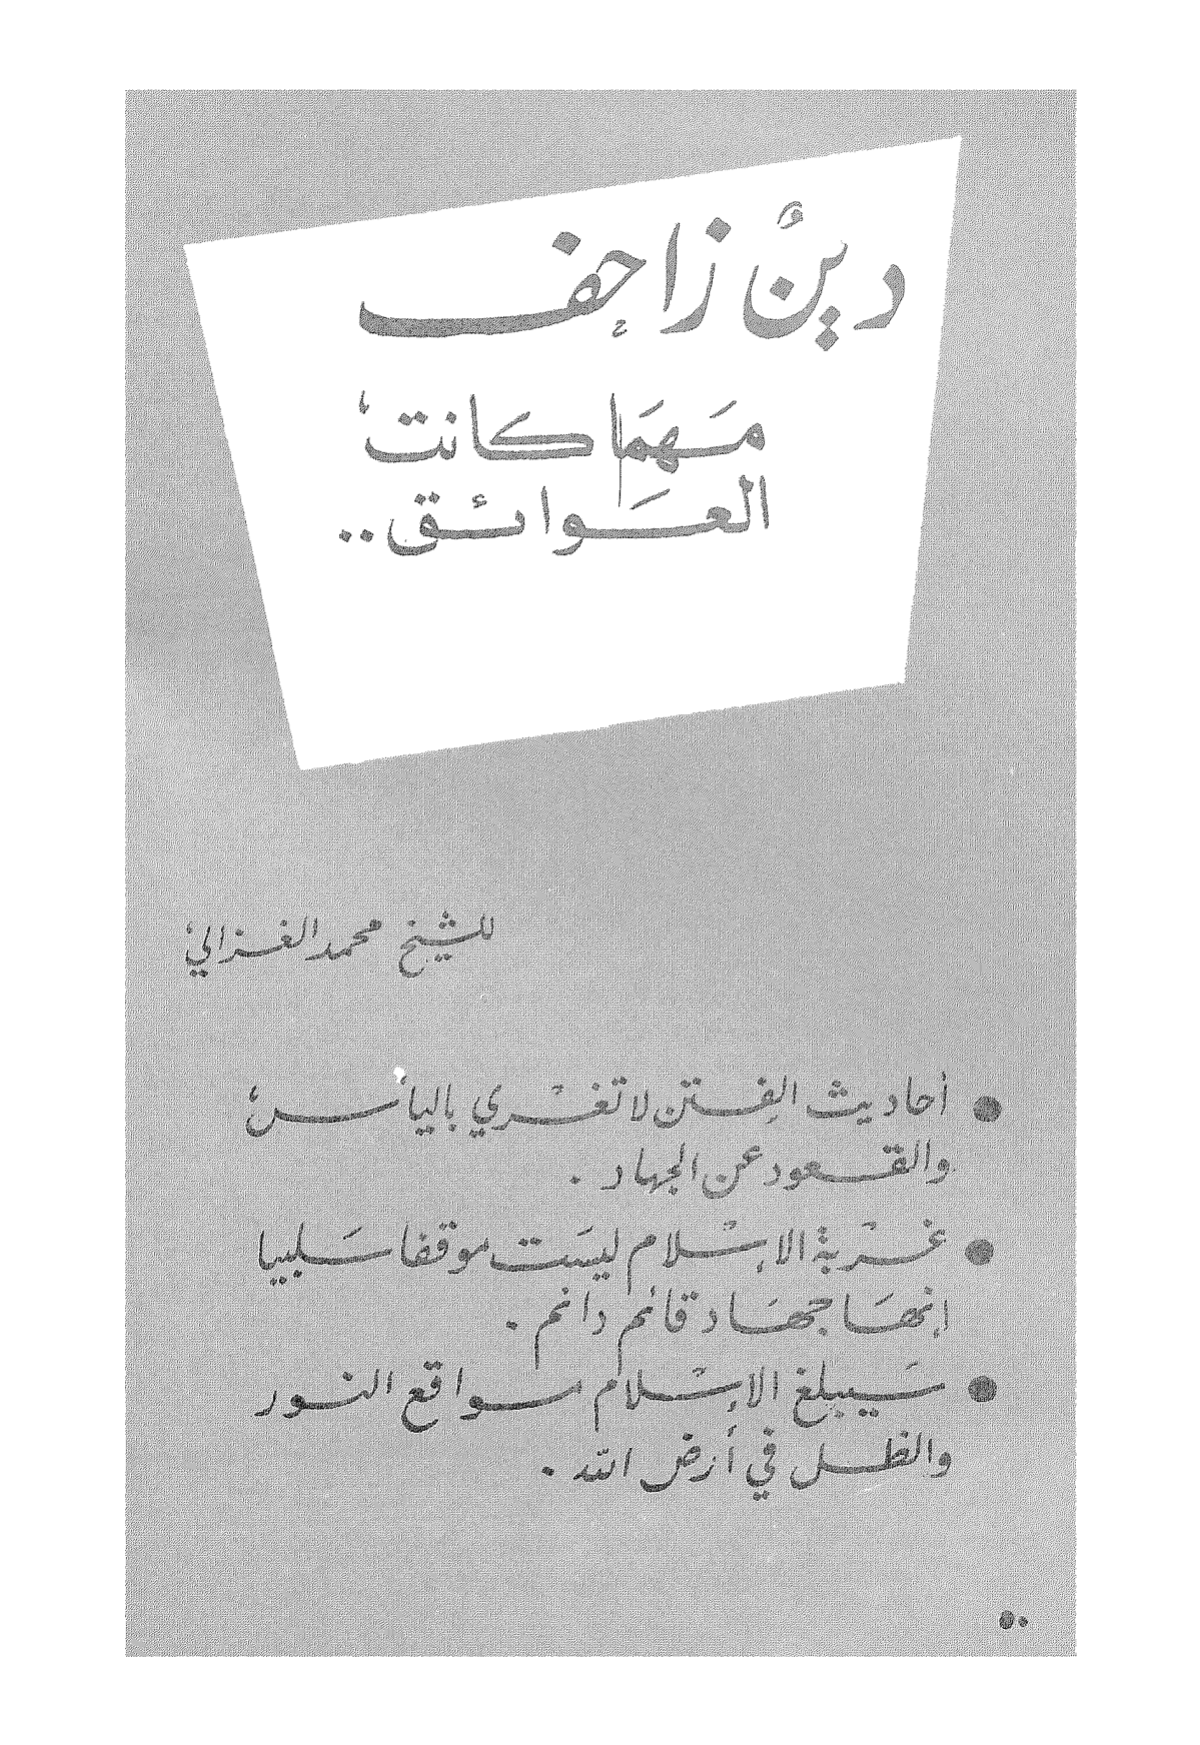 دينٌ زاحف
مَهمَا كانت
العَوائق..
للشيخ محمد الغزالي
● أحاديث الفِتن لا تغْري باليأس
والقعود عن الجهاد .
● غرْبة الإسْلام ليسَت موقفا سَلبيا
إنمَا جهَاد قائم دائم .
● سَيبلغ الإسْلام مواقع النور
والظل في أرض الله .
٥٠